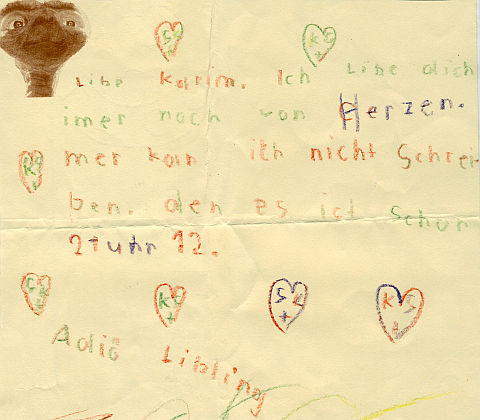 S K K S
Libe Karim. Ich Libe dich
imer noch von Herzen.
K S + mer kan ich nicht Schrei
ben. den es ist schon
21uhr 12.
S K + K S + S K + K S +
Adiö Libling